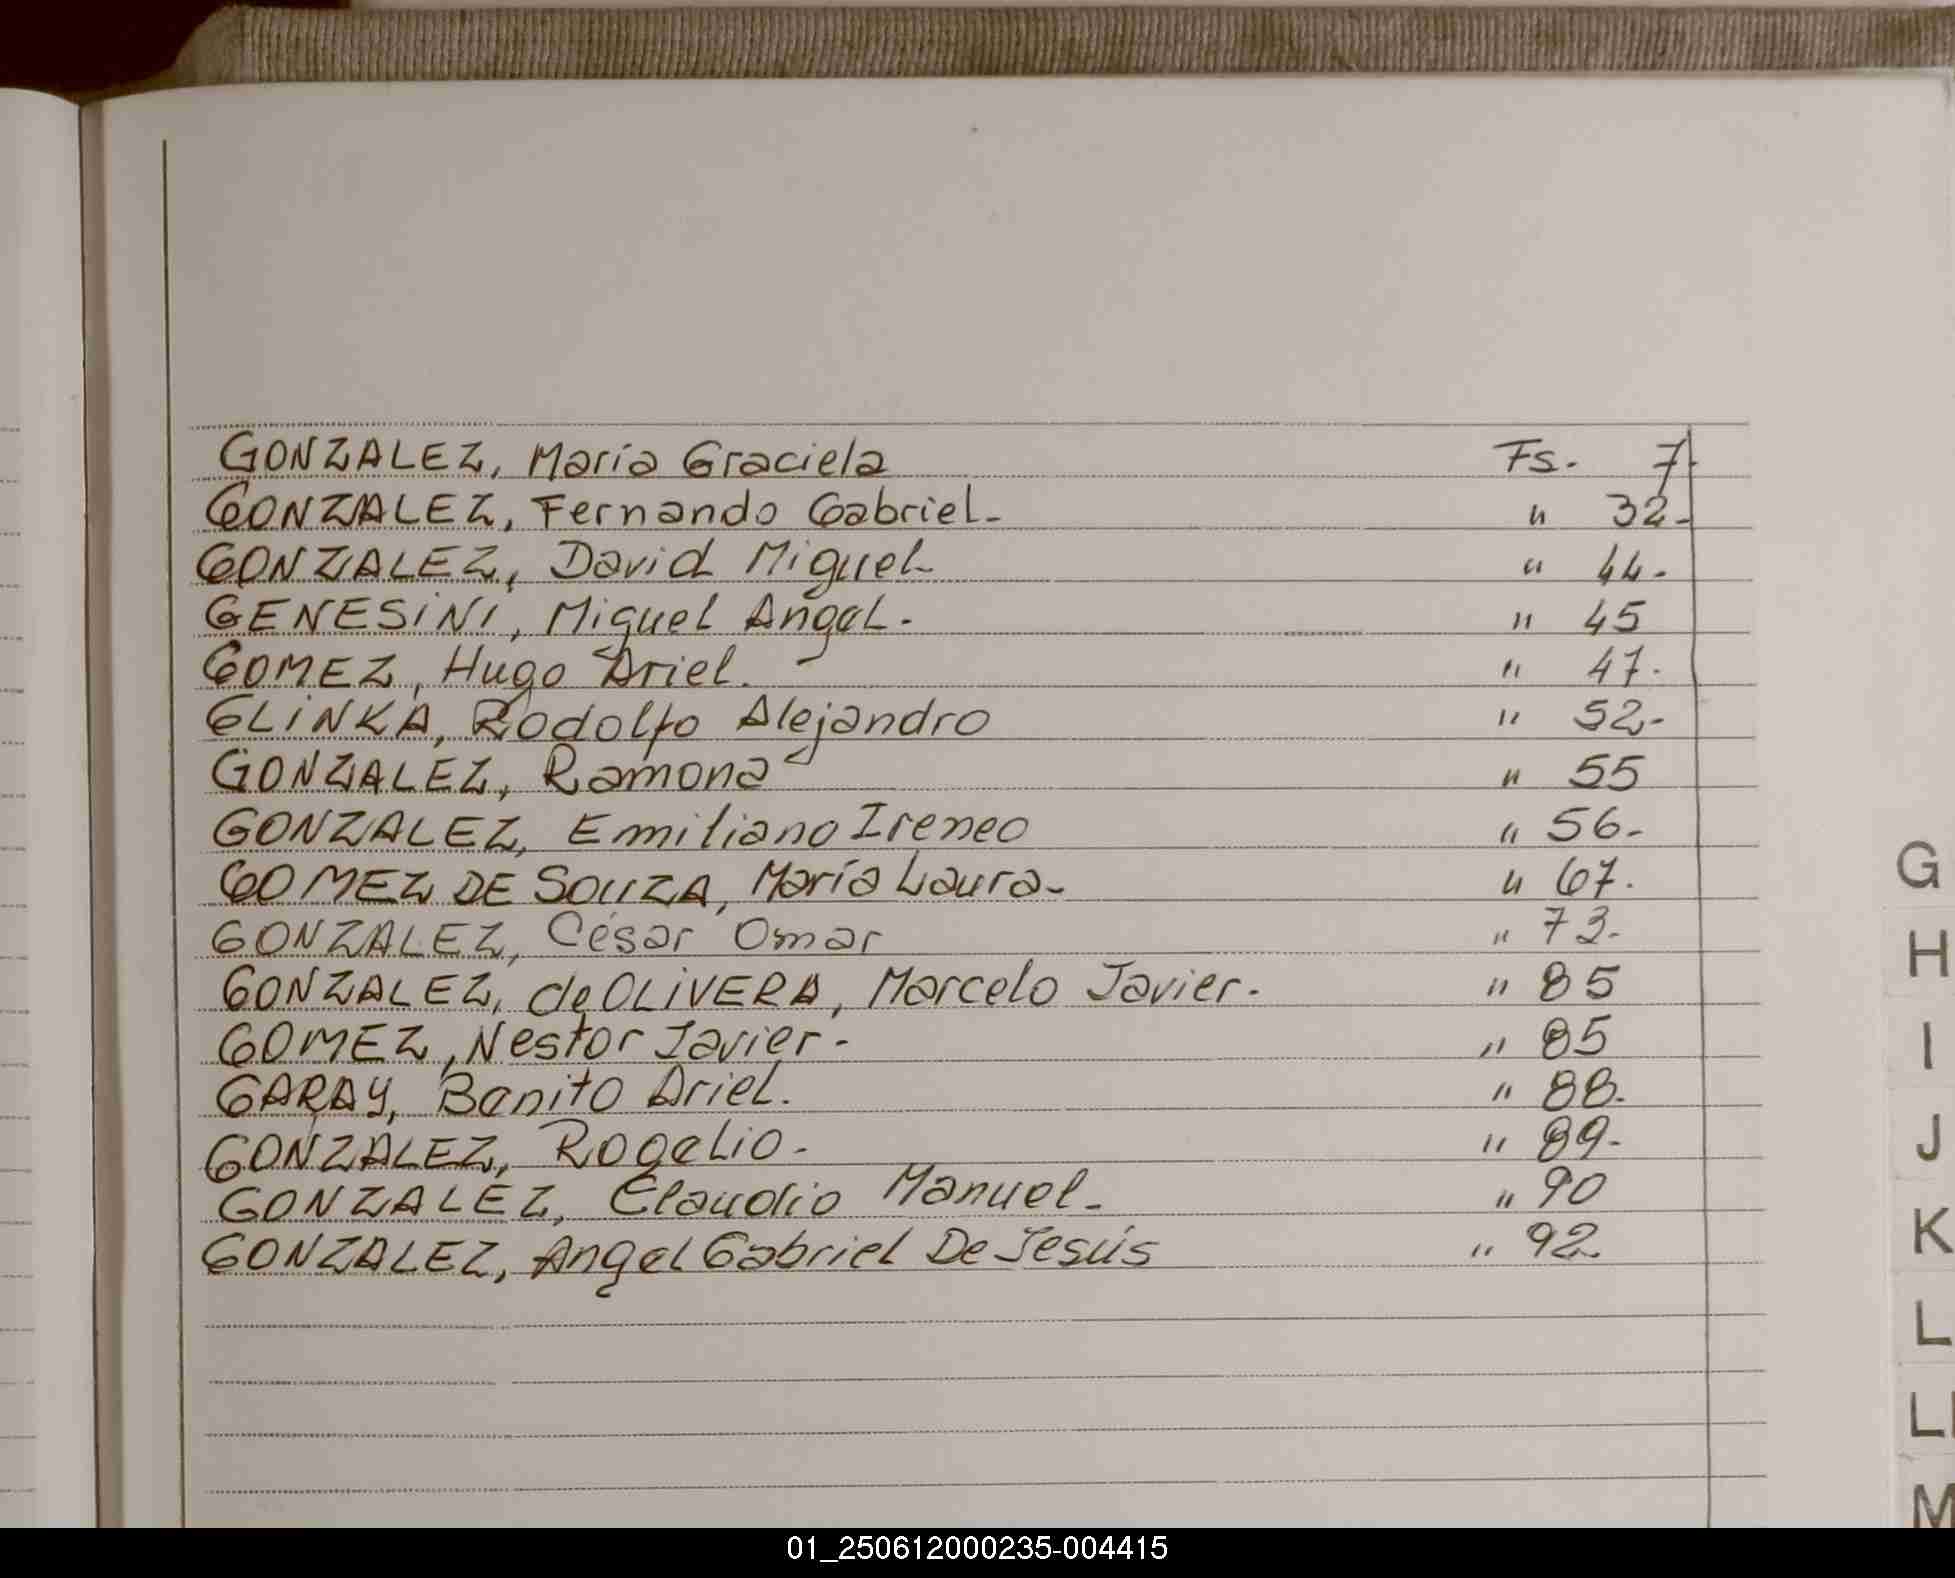 GONZALEZ, María Graciela Fs. 7-
GONZALEZ, Fernando Gabriel- " 32-
GONZALEZ, David Miguel- " 44-
GENESiNI, Miguel Angel.- " 45
GOMEZ, Hugo Ariel. " 47.
GLiNKA, Rodolfo Alejandro " 52-
GONZALEZ, Ramona " 55
GONZALEZ, Emiliano Ireneo " 56-
GOMEZ DE SOUZA, María Laura- " 67.
GONZALEZ, César Omar " 73-
GONZALEZ, de OLiVERA, Marcelo Javier- " 85
GOMEZ, Nestor Javier- " 85
GARAY, Benito Ariel. " 88.
GONZALEZ, Rogelio- " 89-
GONZALEZ, Claudio Manuel- " 90
GONZALEZ, Angel Gabriel De Jesús " 92.
G
H
I
J
K
L
LL
M
01_250612000235-004415